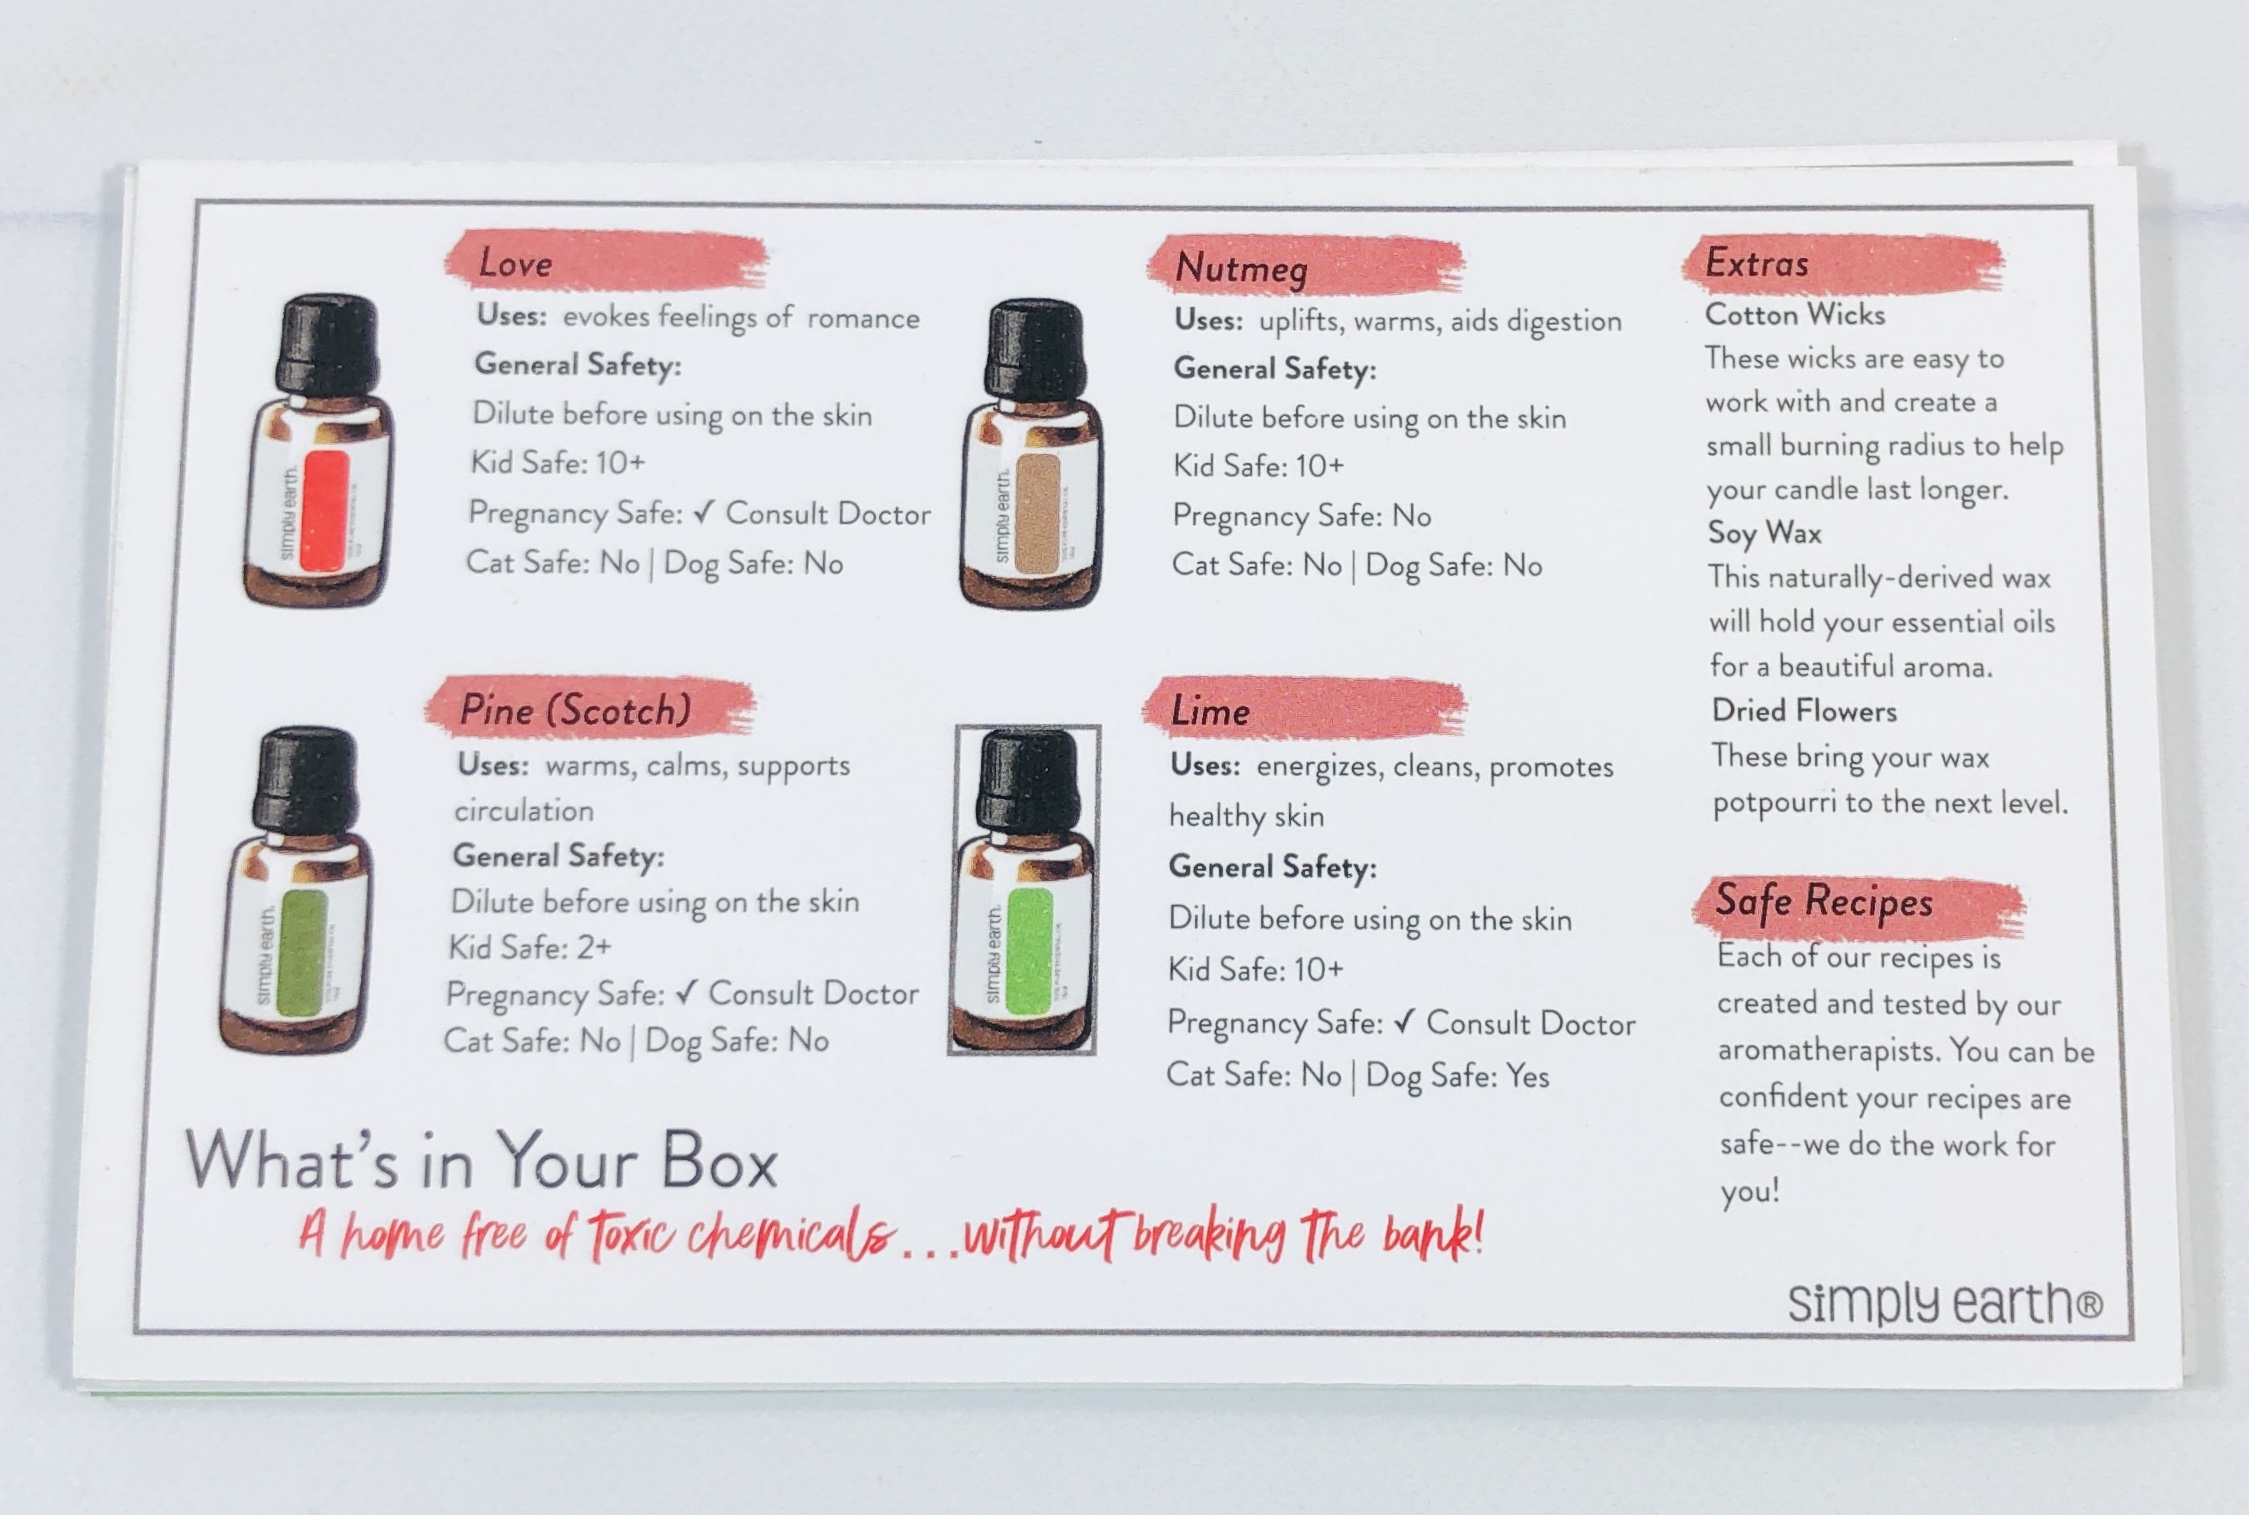 Love
Uses: evokes feelings of romance
General Safety:
Dilute before using on the skin
Kid Safe: 10+
Pregnancy Safe: ✓ Consult Doctor
Cat Safe: No | Dog Safe: No
simply earth.
Nutmeg
Uses: uplifts, warms, aids digestion
General Safety:
Dilute before using on the skin
Kid Safe: 10+
Pregnancy Safe: No
Cat Safe: No | Dog Safe: No
simply earth.
Pine (Scotch)
Uses: warms, calms, supports
circulation
General Safety:
Dilute before using on the skin
Kid Safe: 2+
Pregnancy Safe: ✓ Consult Doctor
Cat Safe: No | Dog Safe: No
simply earth.
Lime
Uses: energizes, cleans, promotes
healthy skin
General Safety:
Dilute before using on the skin
Kid Safe: 10+
Pregnancy Safe: ✓ Consult Doctor
Cat Safe: No | Dog Safe: Yes
simply earth.
Extras
Cotton Wicks
These wicks are easy to
work with and create a
small burning radius to help
your candle last longer.
Soy Wax
This naturally-derived wax
will hold your essential oils
for a beautiful aroma.
Dried Flowers
These bring your wax
potpourri to the next level.
Safe Recipes
Each of our recipes is
created and tested by our
aromatherapists. You can be
confident your recipes are
safe--we do the work for
you!
What's in Your Box
A home free of toxic chemicals...without breaking the bank!
simply earth®